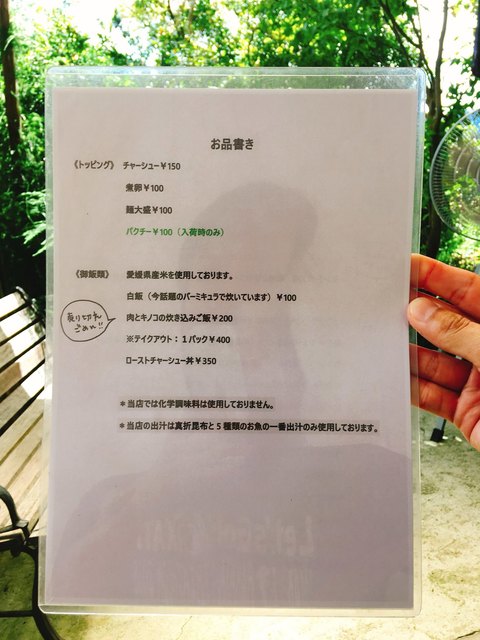 お品書き
《トッピング》 チャーシュー￥150
煮卵￥100
麺大盛￥100
パクチー￥100（入荷時のみ）
《御飯類》 愛媛県産米を使用しております。
白飯（今話題のバーミキュラで炊いています）￥100
売り切れ
ごめん!!
肉とキノコの炊き込みご飯￥200
※テイクアウト：１パック￥400
ローストチャーシュー丼￥350
＊当店では化学調味料は使用しておりません。
＊当店の出汁は真折昆布と５種類のお魚の一番出汁のみ使用しております。